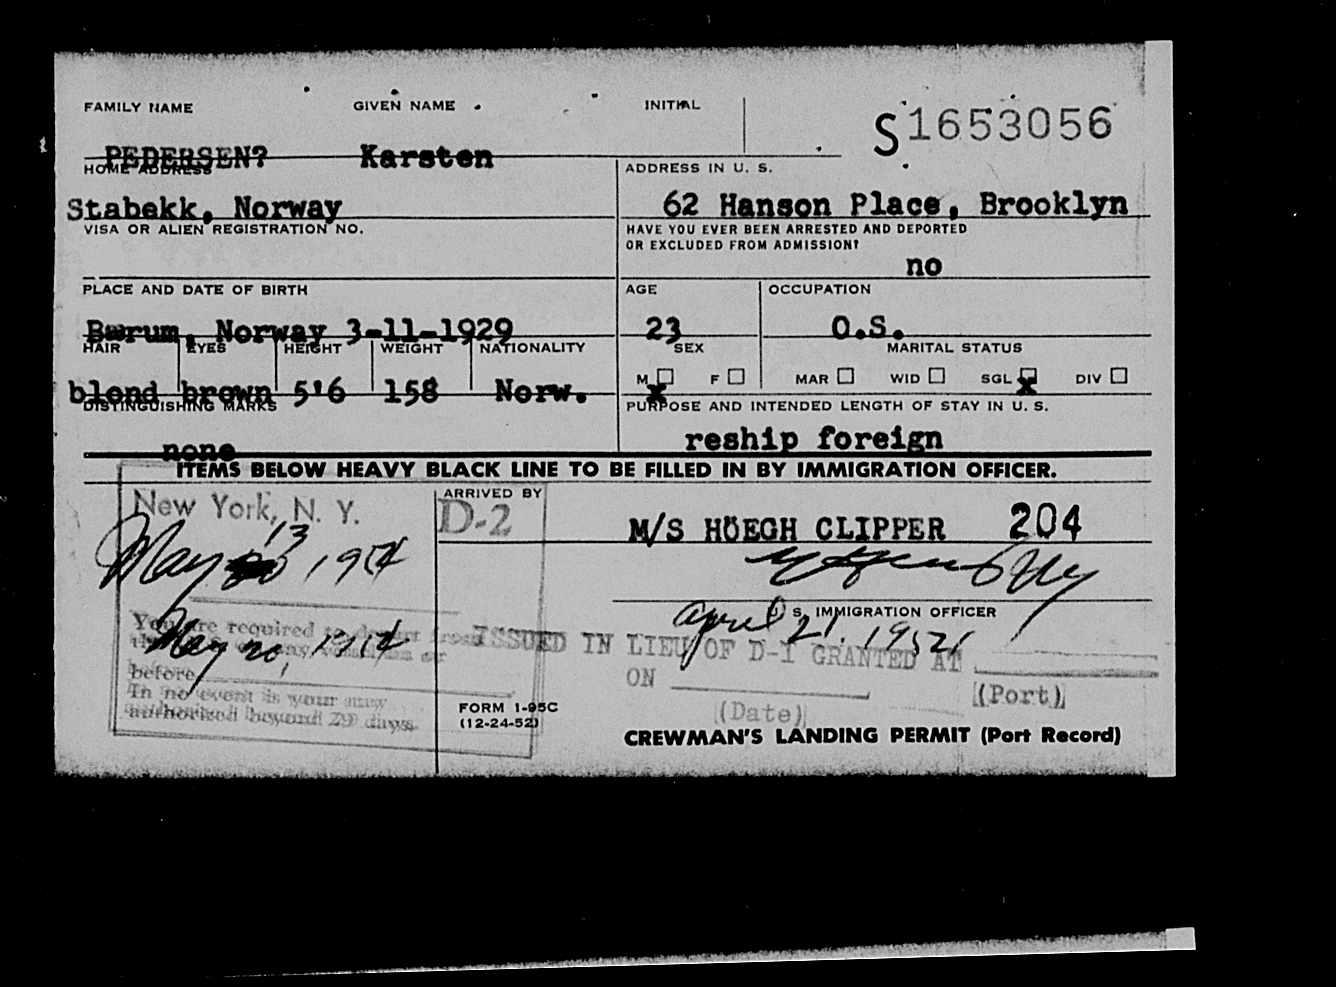 FAMILY NAME GIVEN NAME INITIAL
S1653056
PEDERSEN? Karsten
HOME ADDRESS ADDRESS IN U. S.
Stabekk, Norway 62 Hanson Place, Brooklyn
VISA OR ALIEN REGISTRATION NO. HAVE YOU EVER BEEN ARRESTED AND DEPORTED
OR EXCLUDED FROM ADMISSION?
no
PLACE AND DATE OF BIRTH AGE OCCUPATION
Bærum, Norway 3-11-1929 23 O.S.
HAIR EYES HEIGHT WEIGHT NATIONALITY SEX MARITAL STATUS
M x F MAR WID SGL x DIV
blond brown 5'6 158 Norw.
DISTINGUISHING MARKS PURPOSE AND INTENDED LENGTH OF STAY IN U. S.
none reship foreign
ITEMS BELOW HEAVY BLACK LINE TO BE FILLED IN BY IMMIGRATION OFFICER.
New York, N. Y. ARRIVED BY
D-2 M/S HÖEGH CLIPPER 204
13
May 1954
U. S. IMMIGRATION OFFICER
April 21. 1952
You are required to depart from
ISSUED IN LIEU OF D-1 GRANTED AT
before
ON
(Port)
In no event is your stay
authorized beyond 29 days.
(Date)
FORM I-95C
(12-24-52)
CREWMAN'S LANDING PERMIT (Port Record)